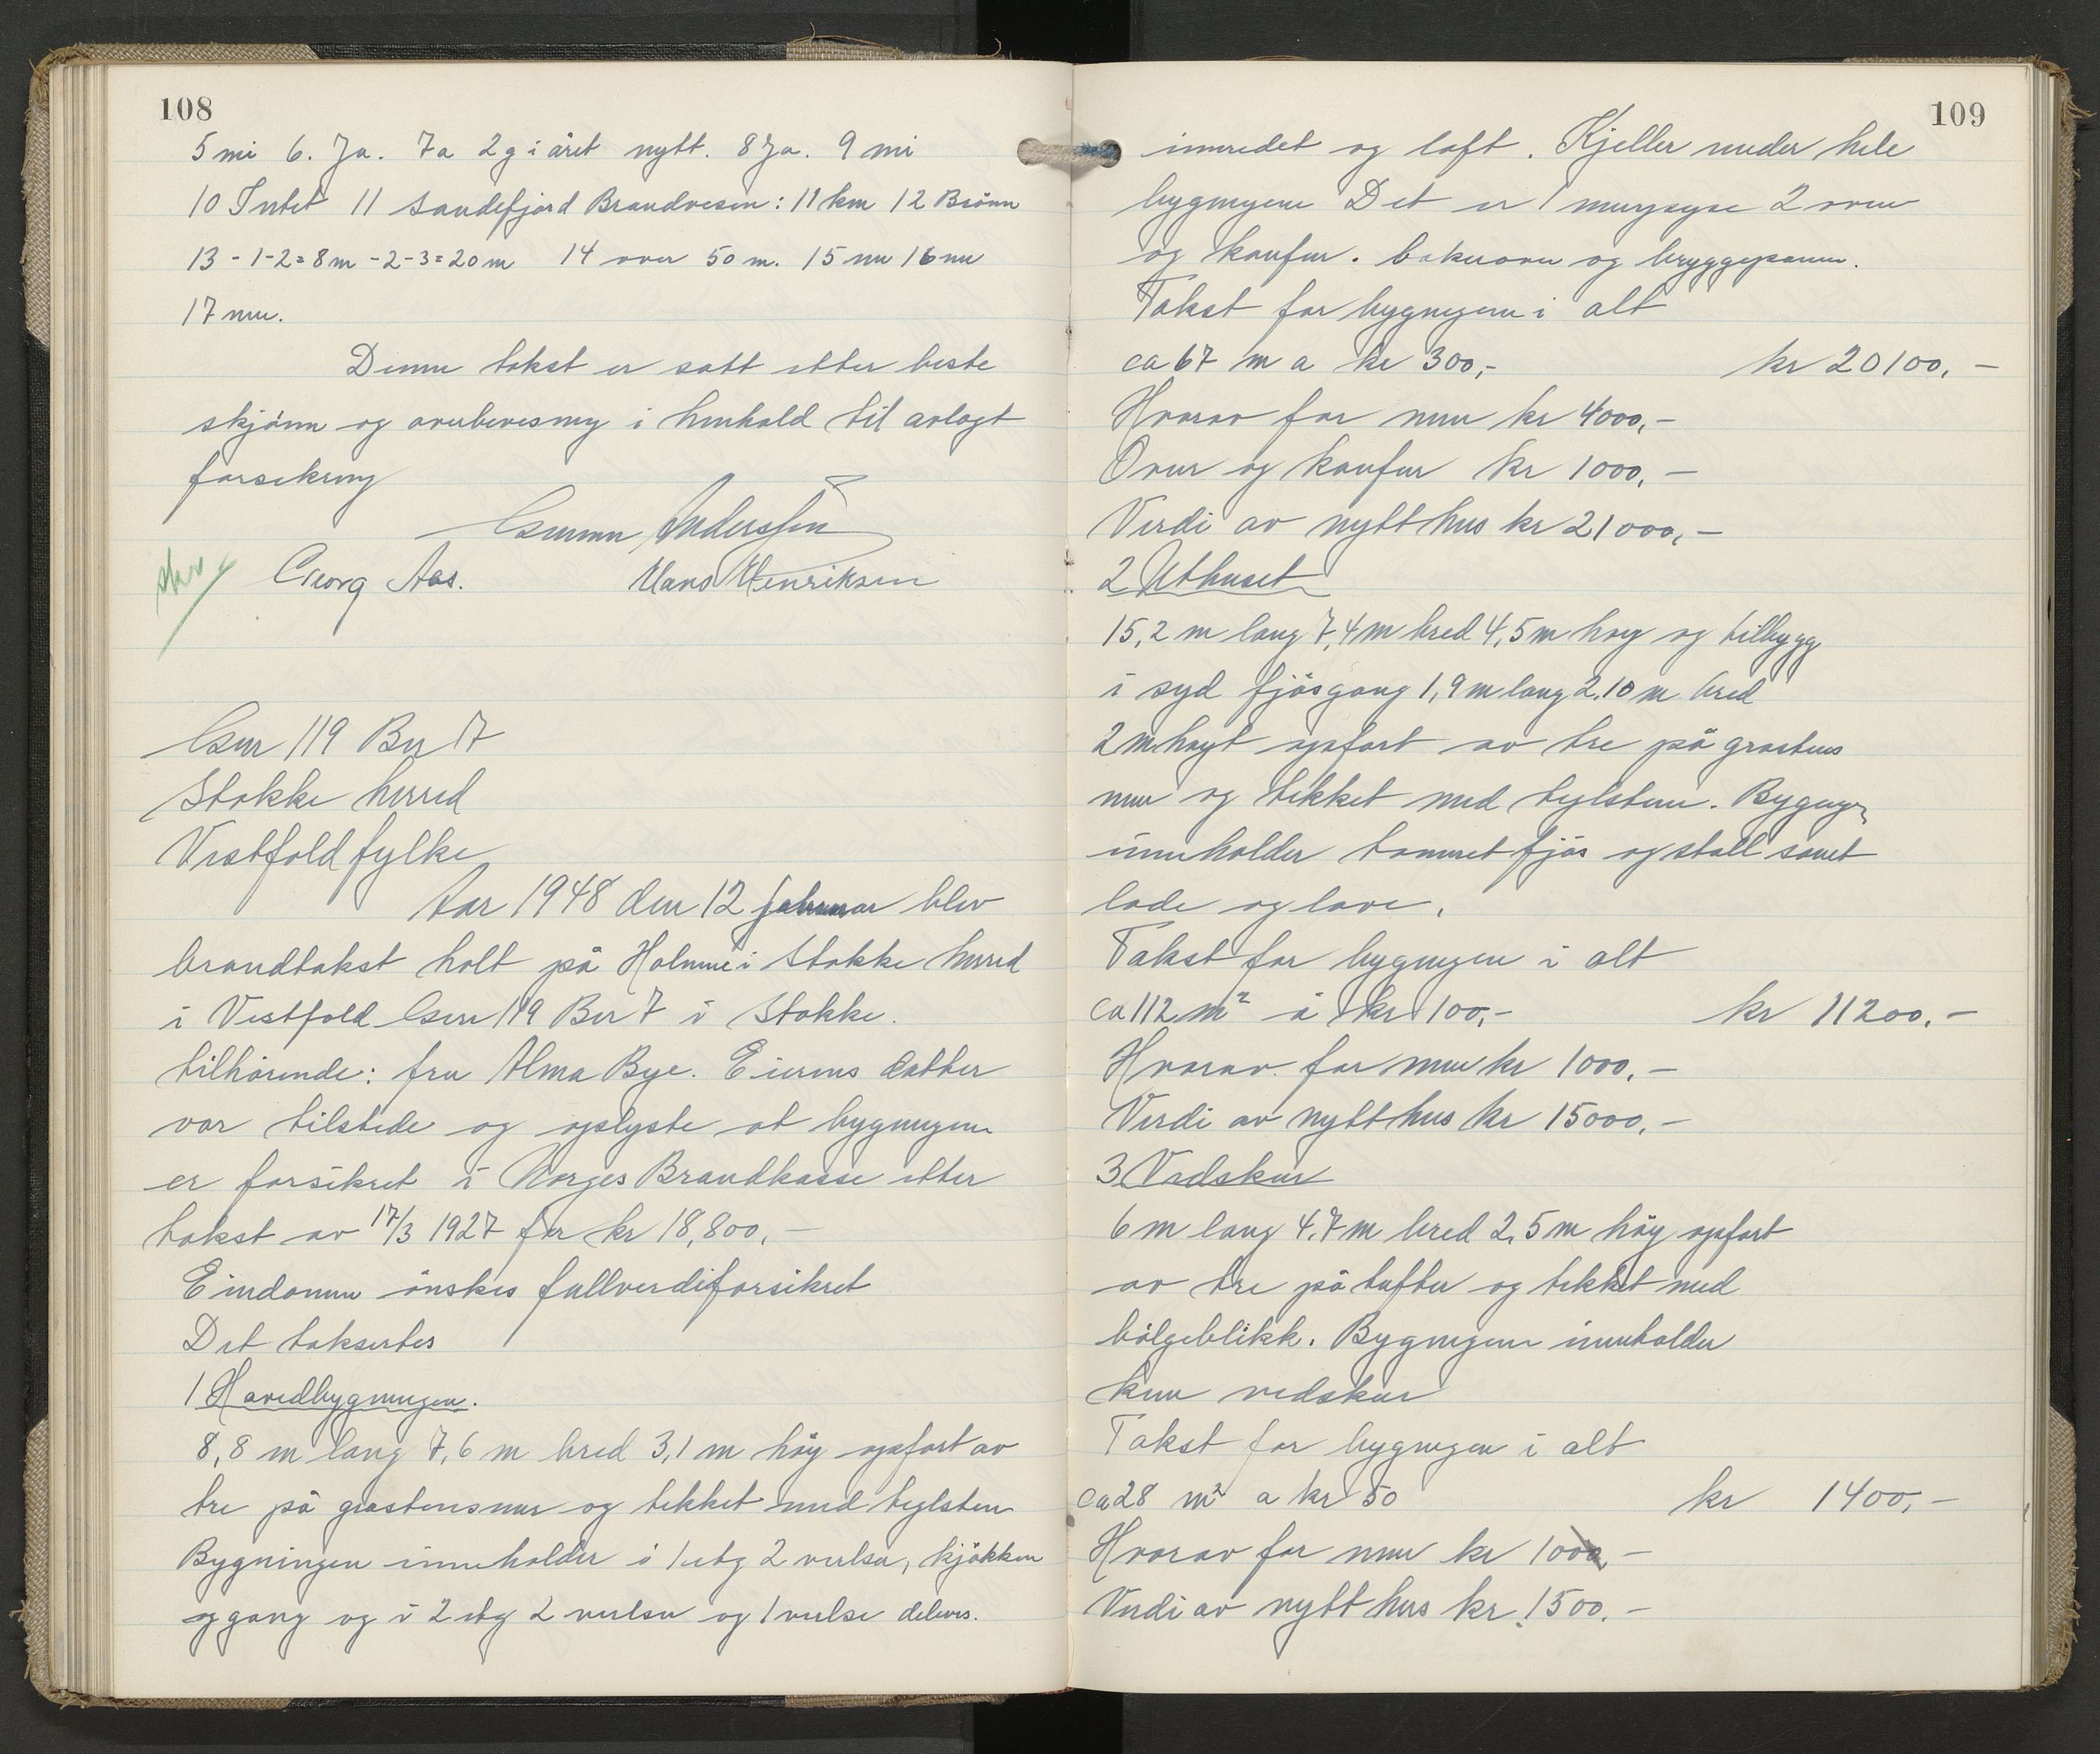 108
5 nei 6. Ja. 7a 2 g i året nytt. 8 Ja. 9 nei
10 Intet 11 Sandefjord Brandvesen: 11 km 12 Brönn
13 - 1-2 = 8 m - 2-3 = 20 m 14 over 50 m. 15 nei 16 nei
17 nei.
Denne takst er satt etter beste
skjønn og overbevisning i henhold til avlagt
forsikring
Gunnar Anderssen
Georg Aas. Hans Henriksen
Gnr 119 Bnr 7
Stokke herred
Vestfold fylke
Aar 1948 den 12 februar blev
brandtakst holt på Holmene i Stokke herred
i Vestfold Gnr 119 Bnr 7 i Stokke.
tilhørende: fru Alma Bye. Eierens datter
var tilstede og oplyste at bygningene
er forsikret i Norges Brandkasse etter
takst av 17/3 1927 for kr 18,800,-
Eiendommen ønskes fullverdiforsikret
Det taksertes
1 Hovedbygningen.
8,8 m lang 7,6 m bred 3,1 m høy opført av
tre på gråstensmur og tekket med teglsten
Bygningen inneholder i 1 etg 2 værelser, kjøkken
og gang og i 2 etg 2 værelser og 1 værelse delevis.
109
innredet og loft. Kjeller under hele
bygningen Det er 1 murpipe 2 ovner
og komfur. bakerovn og bryggepanne.
Takst for bygningen i alt
ca 67 m a kr 300,- kr 20100,-
Hvorav for mur kr 4000,-
Ovner og komfur kr 1000,-
Verdi av nytt hus kr 21000,-
2 Uthuset
15,2 m lang 7,4 m bred 4,5 m høy og tilbygg
i syd fjøsgang 1,9 m lang 2,10 m bred
2 m høyt opført av tre på gråstens
mur og tekket med teglsten. Bygningen
inneholder tømret fjøs og stall samt
lade og lave.
Takst for bygningen i alt
ca 112 m² à kr 100,- kr 11200,-
Hvorav for mur kr 1000,-
Verdi av nytt hus kr 15000,-
3 Vedskur
6 m lang 4,7 m bred 2,5 m høy opført
av tre på tufter og tekket med
bølgeblikk. Bygningen inneholder
kun vedskur
Takst for bygningen i alt
ca 28 m² a kr 50 kr 1400,-
Hvorav for mur kr 100,-
Verdi av nytt hus kr 1500,-